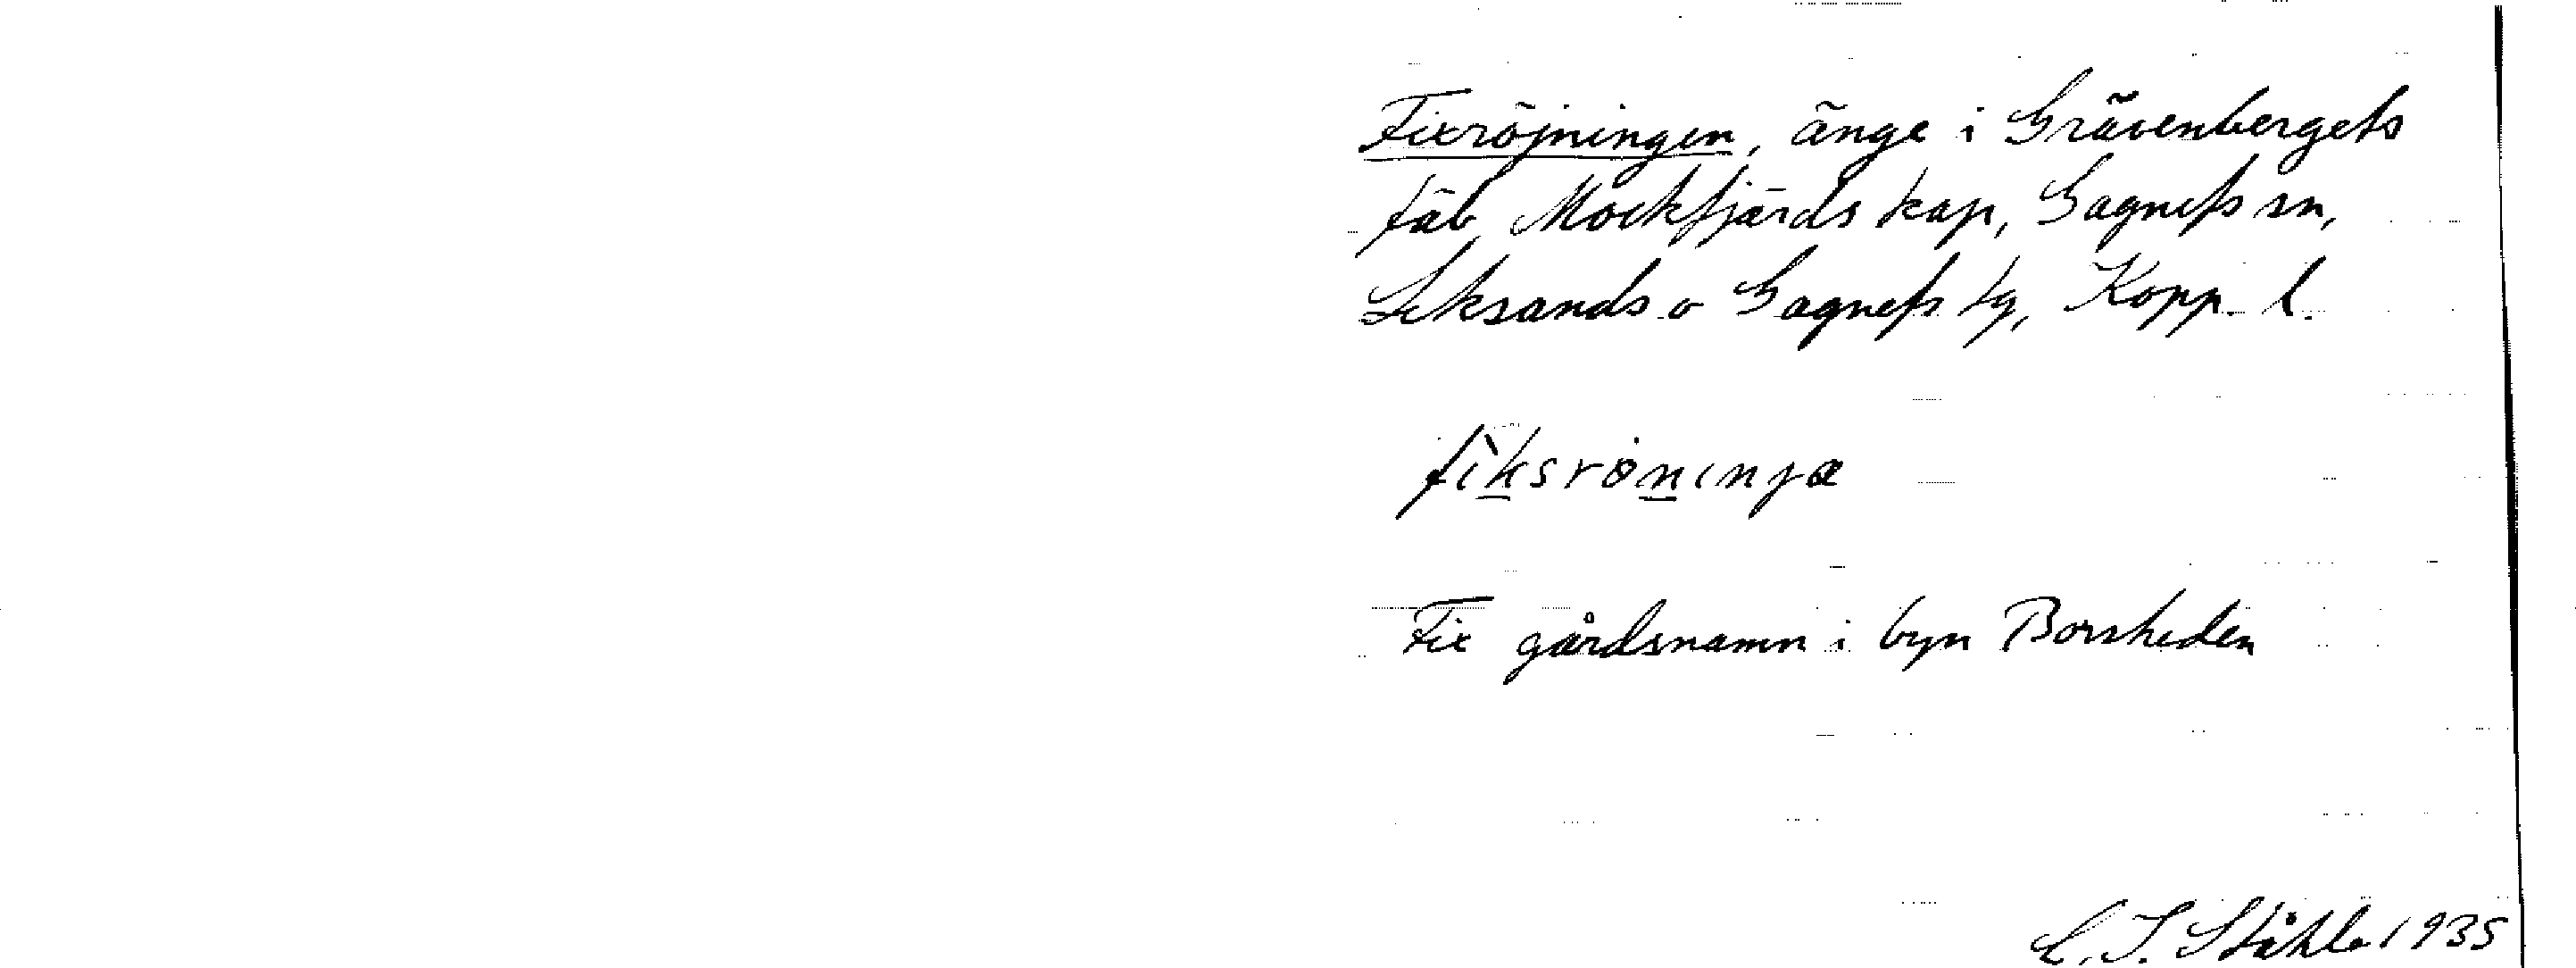 Fixröjningen, änge i Grävenbergets
fäb, Mockfjärds kap, Gagnefs sn,
Leksands o Gagnefs tg, Kopp. l.
fìksröninja
Fix gårdsnamn i byn Borsheden
C. I. Ståhle 1935